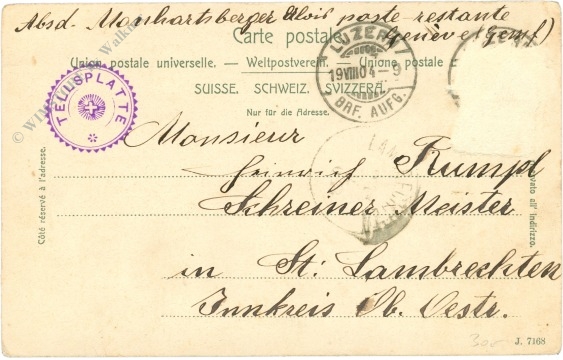 Absd. Monhartsberger Alois poste restante
Genève (Genf)
Carte postale.
Union postale universelle. — Weltpostverein. — Unione postale
SUISSE. SCHWEIZ. SVIZZERA.
Nur für die Adresse.
LUZERN
19 VIII 04 - 9
BRF. AUFG.
TELLSPLATTE
Côté réservé à l'adresse.
Monsieur
Heinrich Rumpl
Schreiner Meister
in St: Lambrechten
Innkreis Ob. Oestr.
all' indirizzo.
J. 7168